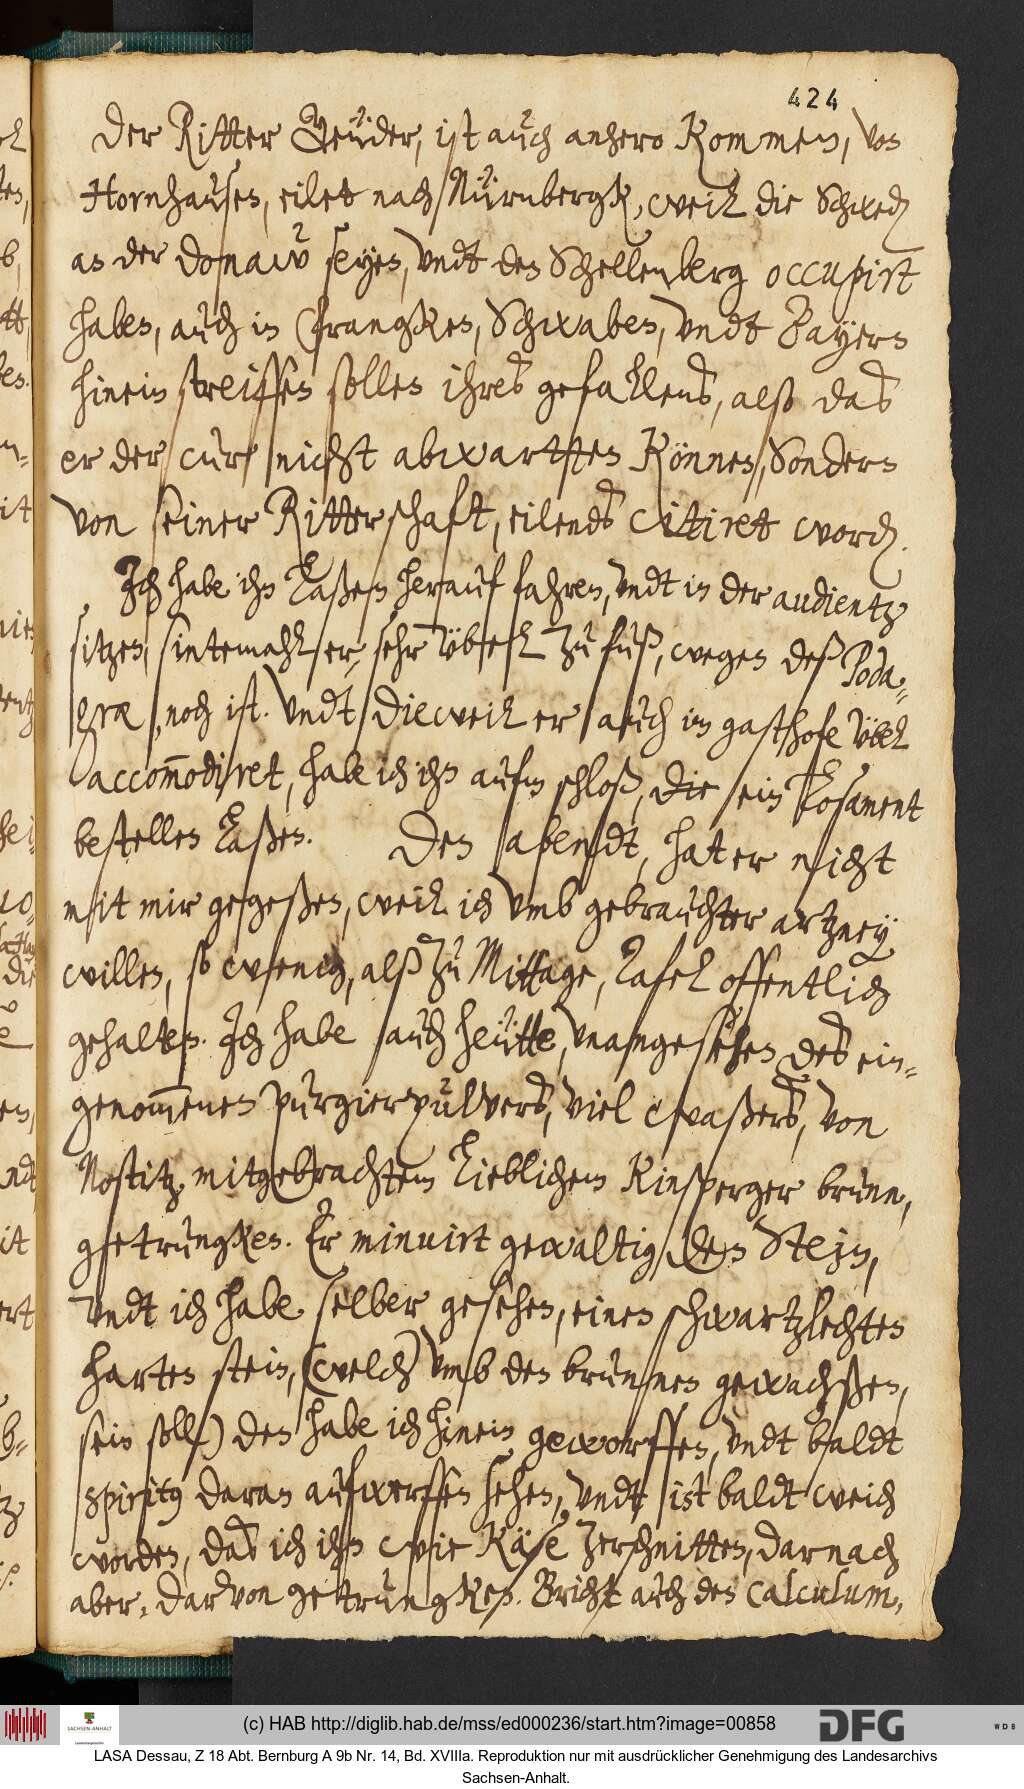 424
Der Ritter Geüder, ist auch anhero kommen, von
Hornhausen, eilet nach Nürnbergk, weil die Schwed
an der Donaw seyen, vndt den Schellenberg occupirt
haben, auch in Francken, Schwaben, vndt Bayern
hinein streiffen sollen ihres gefallens, also das
er der cur nicht abwartten können, sondern
von seiner Ritterschaft, eilends citiret word.
Ich habe ihn laßen herauf fahren, vndt in der audientz
sitzen, sintemahl er, sehr übel zu fuß, wegen deß Poda-
græ, noch ist. Vndt dieweil er auch im gasthofe übel
accommodiret, habe ich ihn aufm schloß, die sein losament
bestellen laßen. Den abendt, hat er nicht
mit mir gegeßen, weil ich vmb gebrauchter artzney
willen, so wenig, alß zu Mittage, Tafel offentlich
gehalten. Ich habe auch heütte, vnangesehen des ein-
genommenen purgierpulvers, viel waßers, von
Nostitz, mitgebrachtem lieblichem Kinsperger brunn,
getrungken. Er minuirt gewaltig den Stein,
vndt ich habe selber gesehen, einen schwartzlechten
harten stein, (welch vmb den brunnen gewachßen,
sein soll) den habe ich hinein geworffen, vndt baldt
spiritus daran aufwerffen sehen, vndt ist baldt weich
worden, das ich ihn wie Käse zerschnitten, darnach
aber, darvon getrungken. Bricht auch den calculum,
(c) HAB http://diglib.hab.de/mss/ed000236/start.htm?image=00858
SACHSEN-ANHALT
DFG
WDB
LASA Dessau, Z 18 Abt. Bernburg A 9b Nr. 14, Bd. XVIIIa. Reproduktion nur mit ausdrücklicher Genehmigung des Landesarchivs
Sachsen-Anhalt.